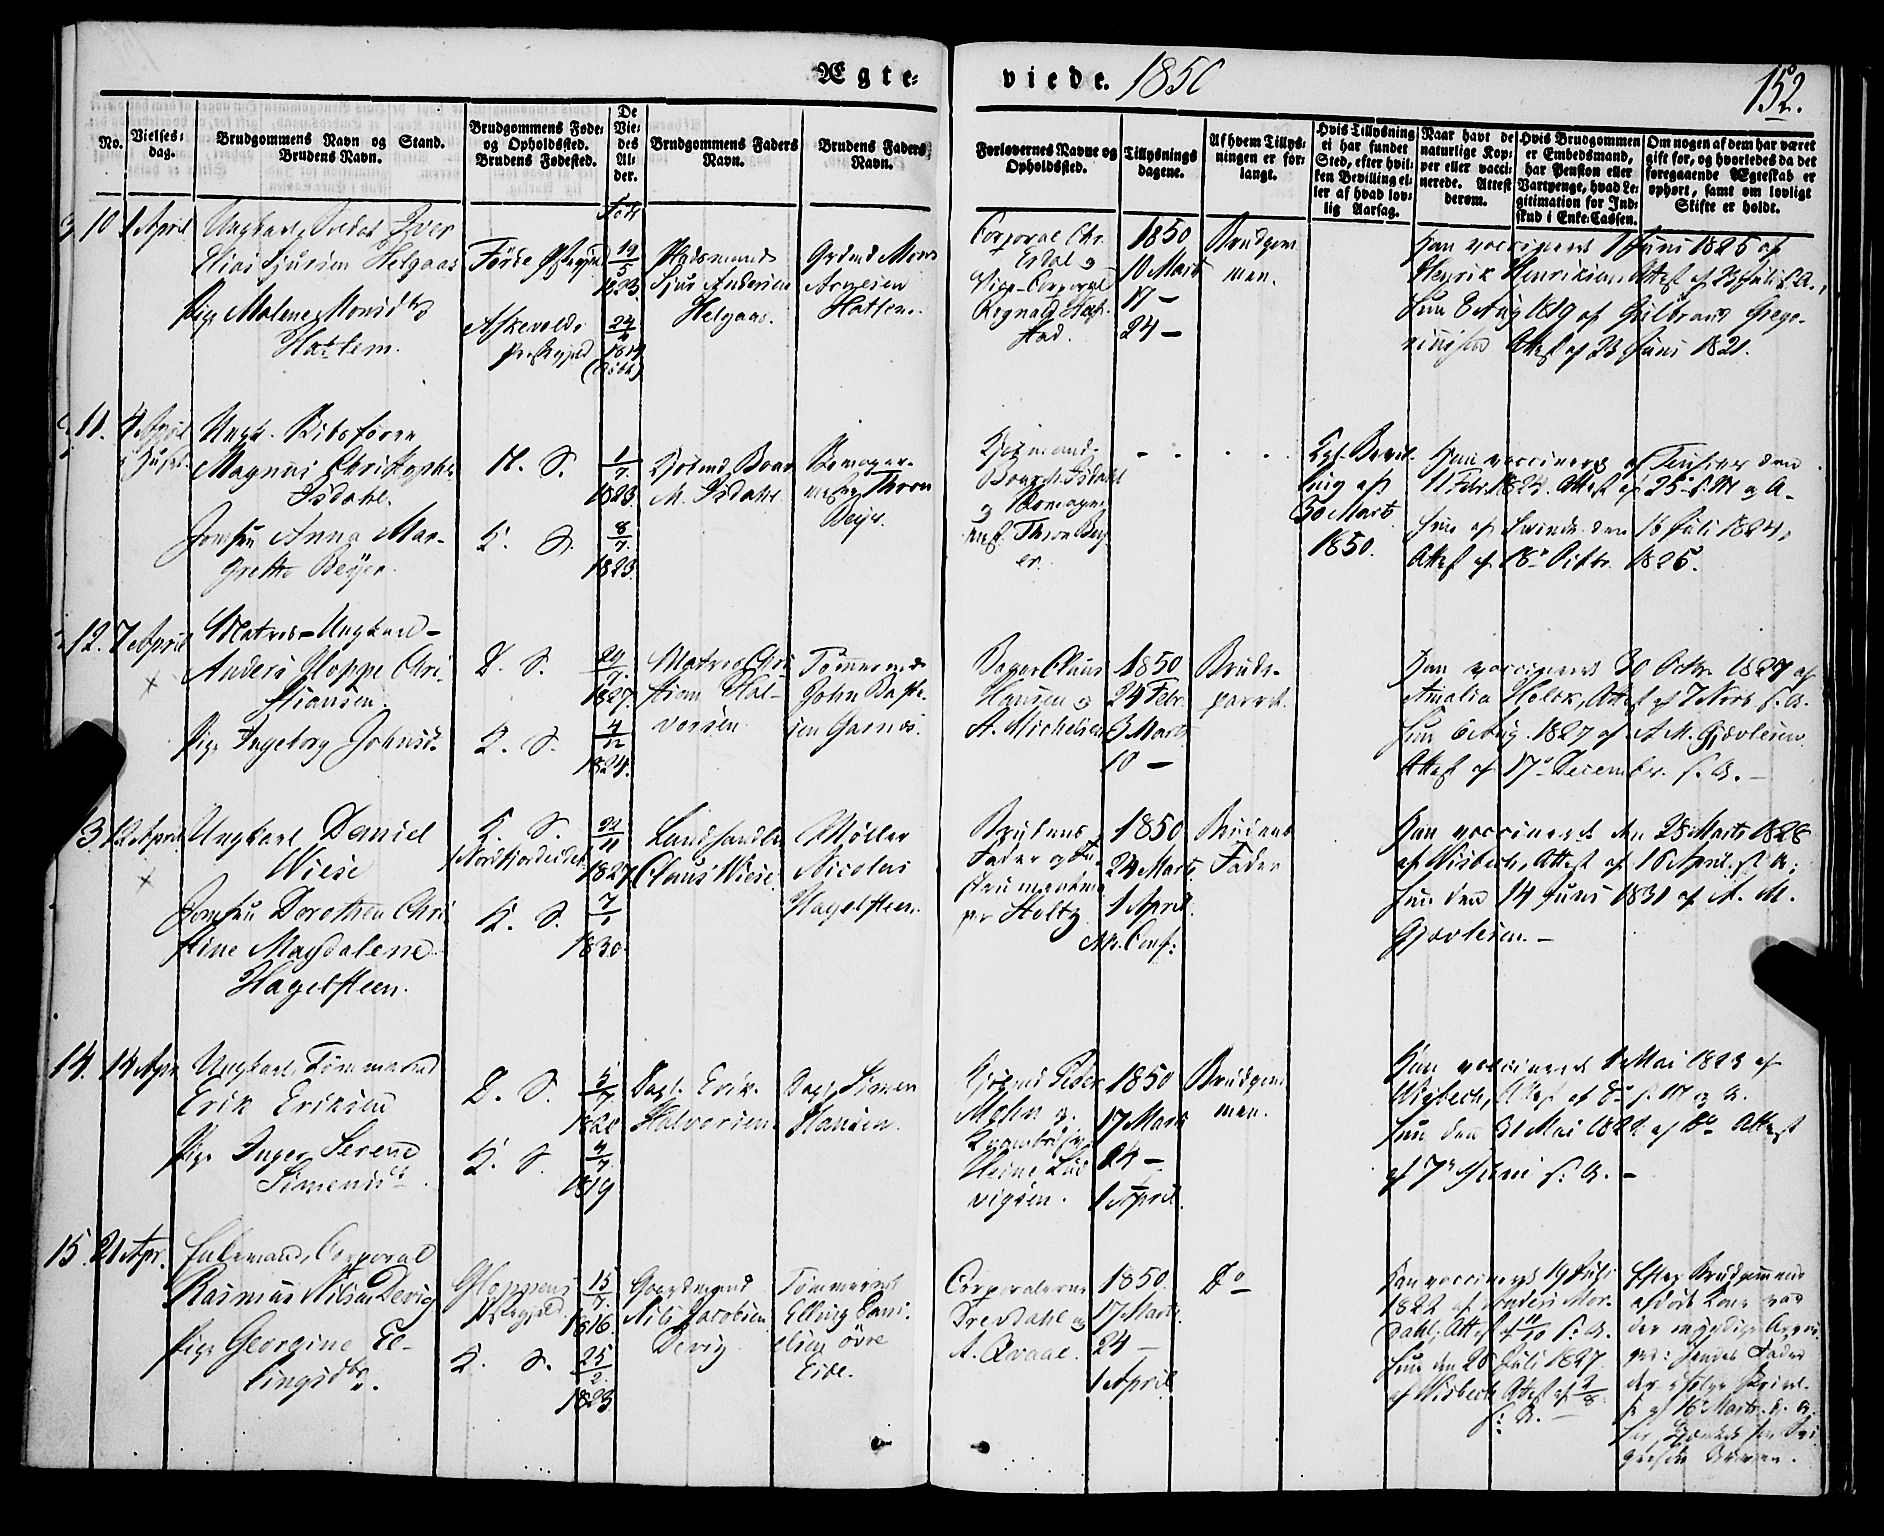 Ægte-
viede. 1850
152.
No.
Vielses-
dag.
Brudgommens Navn og Stand.
Brudens Navn.
Brudgommens Føde-
og Opholdssted.
Brudens Fødested.
De
Vie-
des
Al-
der.
Brudgommens Faders
Navn.
Brudens Faders
Navn.
Forlovernes Navne og
Opholdssted.
Tillysnings
dagene.
Af hvem Tillys-
ningen er for-
langt.
Hvis Tillysning
ei har fundet
Sted, efter hvil-
ken Bevilling el-
ler af hvad lov-
lig Aarsag.
Naar havt de
naturlige Kop-
per eller vacci-
nerede. Attest
derom.
Hvis Brudgommen
er Embedsmand,
har Pension eller
Vartpenge, hvad Le-
gitimation for Ind-
skud i Enke-Cassen.
Om nogen af dem har været
gift før, og hvorledes da det
foregaaende Ægteskab er
ophørt, samt om lovligt
Skifte er holdt.
10
1 April
Ungkarl, Soldat Iver
Elias Sjursen Helgaas
Pige Malene Monsd.
Hattem.
Førde Præstegjd
Askevolds
Præstegjeld
19/5
1823
24
1819
Pladsmand
Sjur Andersen
Helgaas.
Grdmd Mons
Arnesen
Hattem.
Corporal Chr.
Erdal og
Vice-Corporal
Regnald Haf-
stad.
1850
10 Marts
17 —
24 —
Brudgom
men.
Han vaccineret 1 Juni 1825 af
Henrik Henriksen Attest af 23 Juli s. A.,
Hun 8 Aug 1819 af Guldbrand Grego-
riussen Attest af 23 Juni 1821.
11.
4 April
i Huset.
Magnus Christopher
Isdahl.
Jomfru Anna Mar-
grethe Beyer.
N. S.
K. S.
1/7
1823.
8/7.
1823.
Kjøbmd Bonr
M. Isdahl.
Beyer.
Kjøbmand
Isdahl
og
Bey
er.
Kgl. Bevil-
ling af
30 Marts
1850.
Han vaccineret af den
11 Febr. 1824. Attest af 25 s. M og A-
Hun af den 16 Juli 1824,
Attest af 18 Octbr. 1825.
12.
7 April
Matros-Ungkarl-
Anders Hoppe Chri-
stiansen.
Pige Ingeborg Johnsd.
D. S.
K. S.
1827.
4/12
1824.
Matros Chri
stian Hal-
vorsen
Tømmermd
John
sen Garnæs.
Bager Claus
Hansen og
A. Michelsen
1850
24 Febr.
3 Marts
10 —
Brude-
parret.
Han vaccineret 30 Octbr. 1827 af
Amalia Holck, Attest af 7 Novb s. A.
Hun 6 Aug. 1827 af A. M. Gjævlesen
Attest af 17 December s. A. —
3
12 April
Ungkarl Daniel
Wiese
Jomfru Dorothea Chri
stine Magdalene
Hagelsteen.
K. S.
i Nordfjordeidet
K. S.
22/11
1827
7/1
1830
Landhandler
Claus Wiese.
Møller
Nicolai
Hagelsteen.
Brudens
Fader og In-
strumentma
ger Holtz.
1850
24 Marts
1 April.
Brudens
Fader
Han vaccineret den 28 Marts 1828
af Wisbech, Attest af 16 April s. A;
Hun den 14 Juni 1831 af A. M.
Gjævlesen. —
14.
14 Apr
Ungkarl, Tømmermd
Erik Eriksen
Pige Inger Serene
Simensd.
D. S.
K. S.
4/7
1819
Dagl. Erik
Halvorsen.
Dagl. Simen
Hansen.
Kjøbmd Peder
Mohn og
Heine Lud
vigsen.
1850
17 Marts
24 —
1 April.
Brudgom
men.
Han vaccineret 1 Mai 1823 af
Wisbech, Attest af s. M og A.
Hun den 31 Mai 1822 af Do Attest
af 7 Juni s. A. —
15.
21 Apr.
Enkemand, Corporal
Rasmus Nilsen Devig
Pige Georgine El-
lingsd.
Gloppens
Præstegjeld
K. S.
15/7.
1816.
25/2.
1823
Gaardmand
Nils Jacobsen
Devig
Tømmermd
Elling Dani-
elsen Øvre
Eide.
Corporalerne
Drevdahl og
A. Qvaal.
1850.
17 Marts
24 —
1 April
Do
Han vaccineret 19 Juli
1822 af Anders Mor-
dahl, Attest 11/10 s. A.
Hun den 28 Juli 1827.
af Wisbech Attest af 2/8
s. A. —
Efter Brudgommens
afdøde Kone var
der
16 Marts d. A.